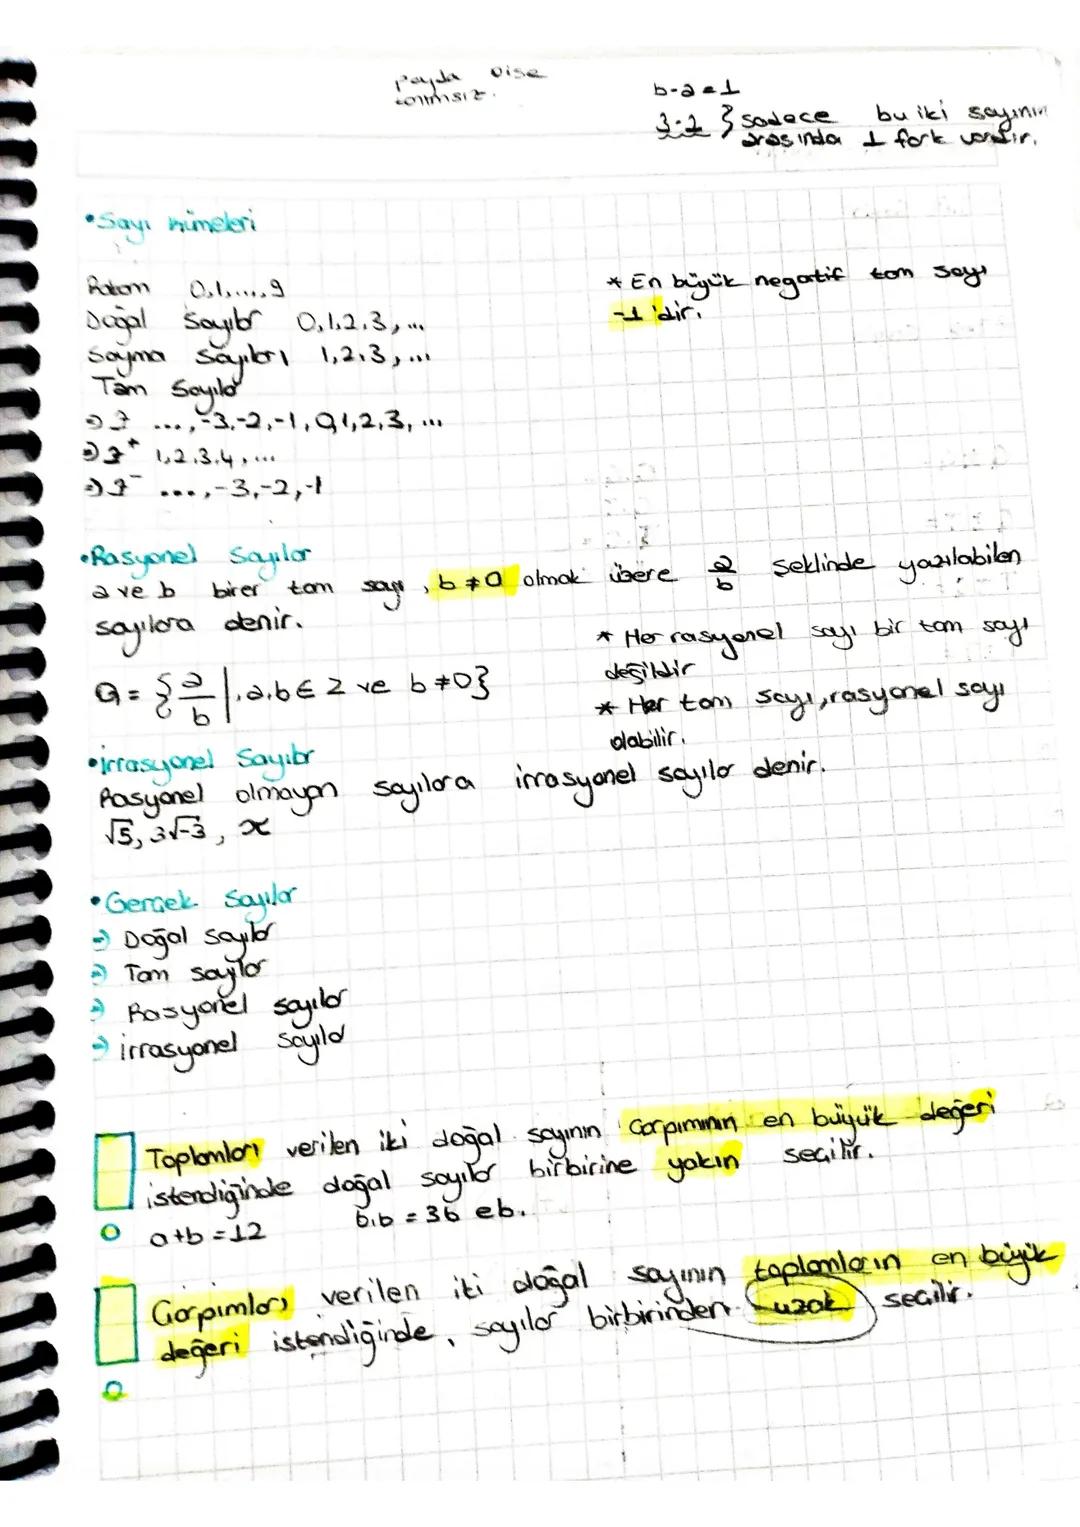 payda 0 ise
tanımsız.
b-a=1
3-2 } sadece bu iki sayının
arasında 1 fark vardır.
•Sayı kümeleri
Rakam 0,1,...,9
Doğal Sayılar 0,1,2,3,...
Sayma Sayıları 1,2,3,...
Tam Sayılar
⇒ Z ...,-3,-2,-1,0,1,2,3,...
⇒ Z⁺ 1,2,3,4,...
⇒ Z⁻ ...,-3,-2,-1
* En büyük negatif tam sayı
-1'dir.
•Rasyonel Sayılar
a ve b birer tam sayı, b≠0 olmak üzere a/b şeklinde yazılabilen
sayılara denir.
Q = {a/b |, a,b ∈ Z ve b≠0}
* Her rasyonel sayı bir tam sayı
değildir
* Her tam sayı, rasyonel sayı
olabilir.
•irrasyonel Sayılar
Rasyonel olmayan sayılara irrasyonel sayılar denir.
√5, 3√-3, π
•Gerçek Sayılar
⇒ Doğal sayılar
⇒ Tam sayılar
⇒ Rasyonel sayılar
⇒ irrasyonel sayılar
Toplamları verilen iki doğal sayının çarpımının en büyük değeri
istendiğinde doğal sayılar birbirine yakın seçilir.
a+b=12 6.6=36 eb.
Çarpımları verilen iki doğal sayının toplamların en büyük
değeri istendiğinde, sayılar birbirinden uzak seçilir.